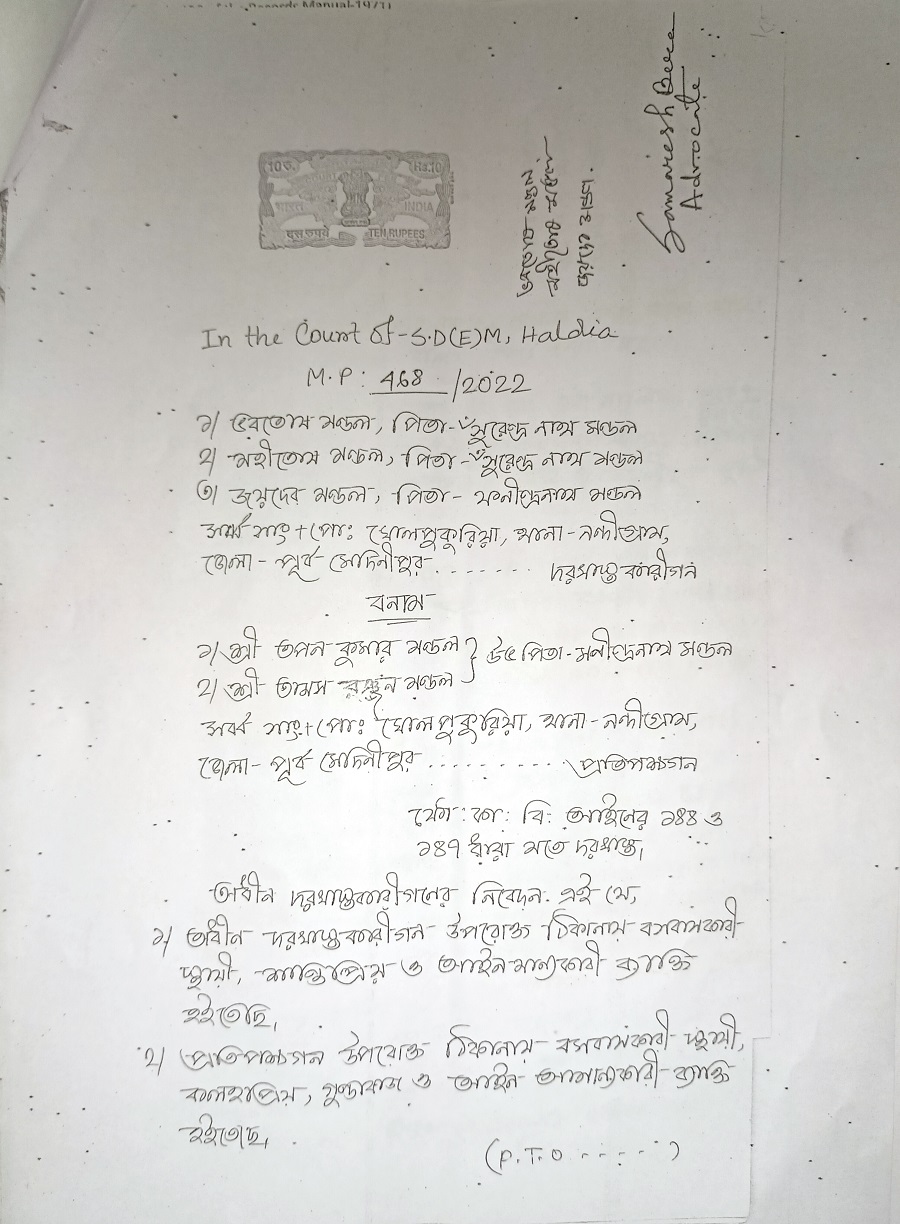 Records Manual-1971
10 रु. Rs.10
भारत INDIA
दस रुपये TEN RUPEES
ভবতোষ মণ্ডল
মহীতোষ মণ্ডল
জয়দেব মণ্ডল
Samaresh Bera
Advocate
In the Court Of - S.D(E)M, Haldia
M.P: 468 /2022
১/ ভবতোষ মণ্ডল, পিতা-ঁসুরেন্দ্র নাথ মণ্ডল
২/ মহীতোষ মণ্ডল, পিতা-ঁসুরেন্দ্র নাথ মণ্ডল
৩/ জয়দেব মণ্ডল, পিতা - ফনীন্দ্রনাথ মণ্ডল
সর্ব্ব সাং+পোঃ ঘোলপুকুরিয়া, থানা - নন্দীগ্রাম,
জেলা - পূর্ব মেদিনীপুর ........ দরখাস্তকারীগন
বনাম
১/ শ্রী তপন কুমার মণ্ডল } উঃ পিতা-মনীন্দ্রনাথ মণ্ডল
২/ শ্রী তাপস রঞ্জন মণ্ডল
সর্ব্ব সাং+পোঃ ঘোলপুকুরিয়া, থানা - নন্দীগ্রাম,
জেলা - পূর্ব মেদিনীপুর .......... প্রতিপক্ষগন
ফৌ: কা: বি: আইনের ১৪৪ ও
১৪৭ ধারা মতে দরখাস্ত।
অধীন দরখাস্তকারীগনের নিবেদন এই যে,
১/ অধীন দরখাস্তকারীগন উপরোক্ত ঠিকানায় বসবাসকারী
স্থায়ী, শান্তিপ্রিয় ও আইনমান্যকারী ব্যাক্তি
হইতেছি।
২/ প্রতিপক্ষগন উপরোক্ত ঠিকানায় বসবাসকারী স্থায়ী,
কলহপ্রিয়, গুন্ডাবাজ ও আইন অমান্যকারী ব্যাক্তি
হইতেছে।
(P.T.O ......)